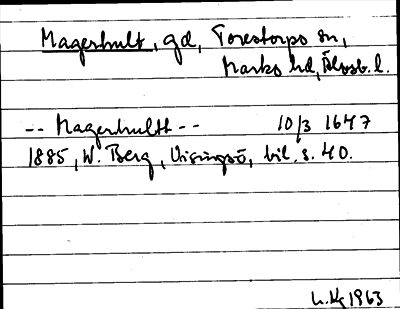 Magerhult, gd, Torestorps sn,
Marks hd, Älvsb. l.
-- Magerhultt -- 10/3 1647
1885, W. Berg, Visingsö, bil. s. 40.
1963